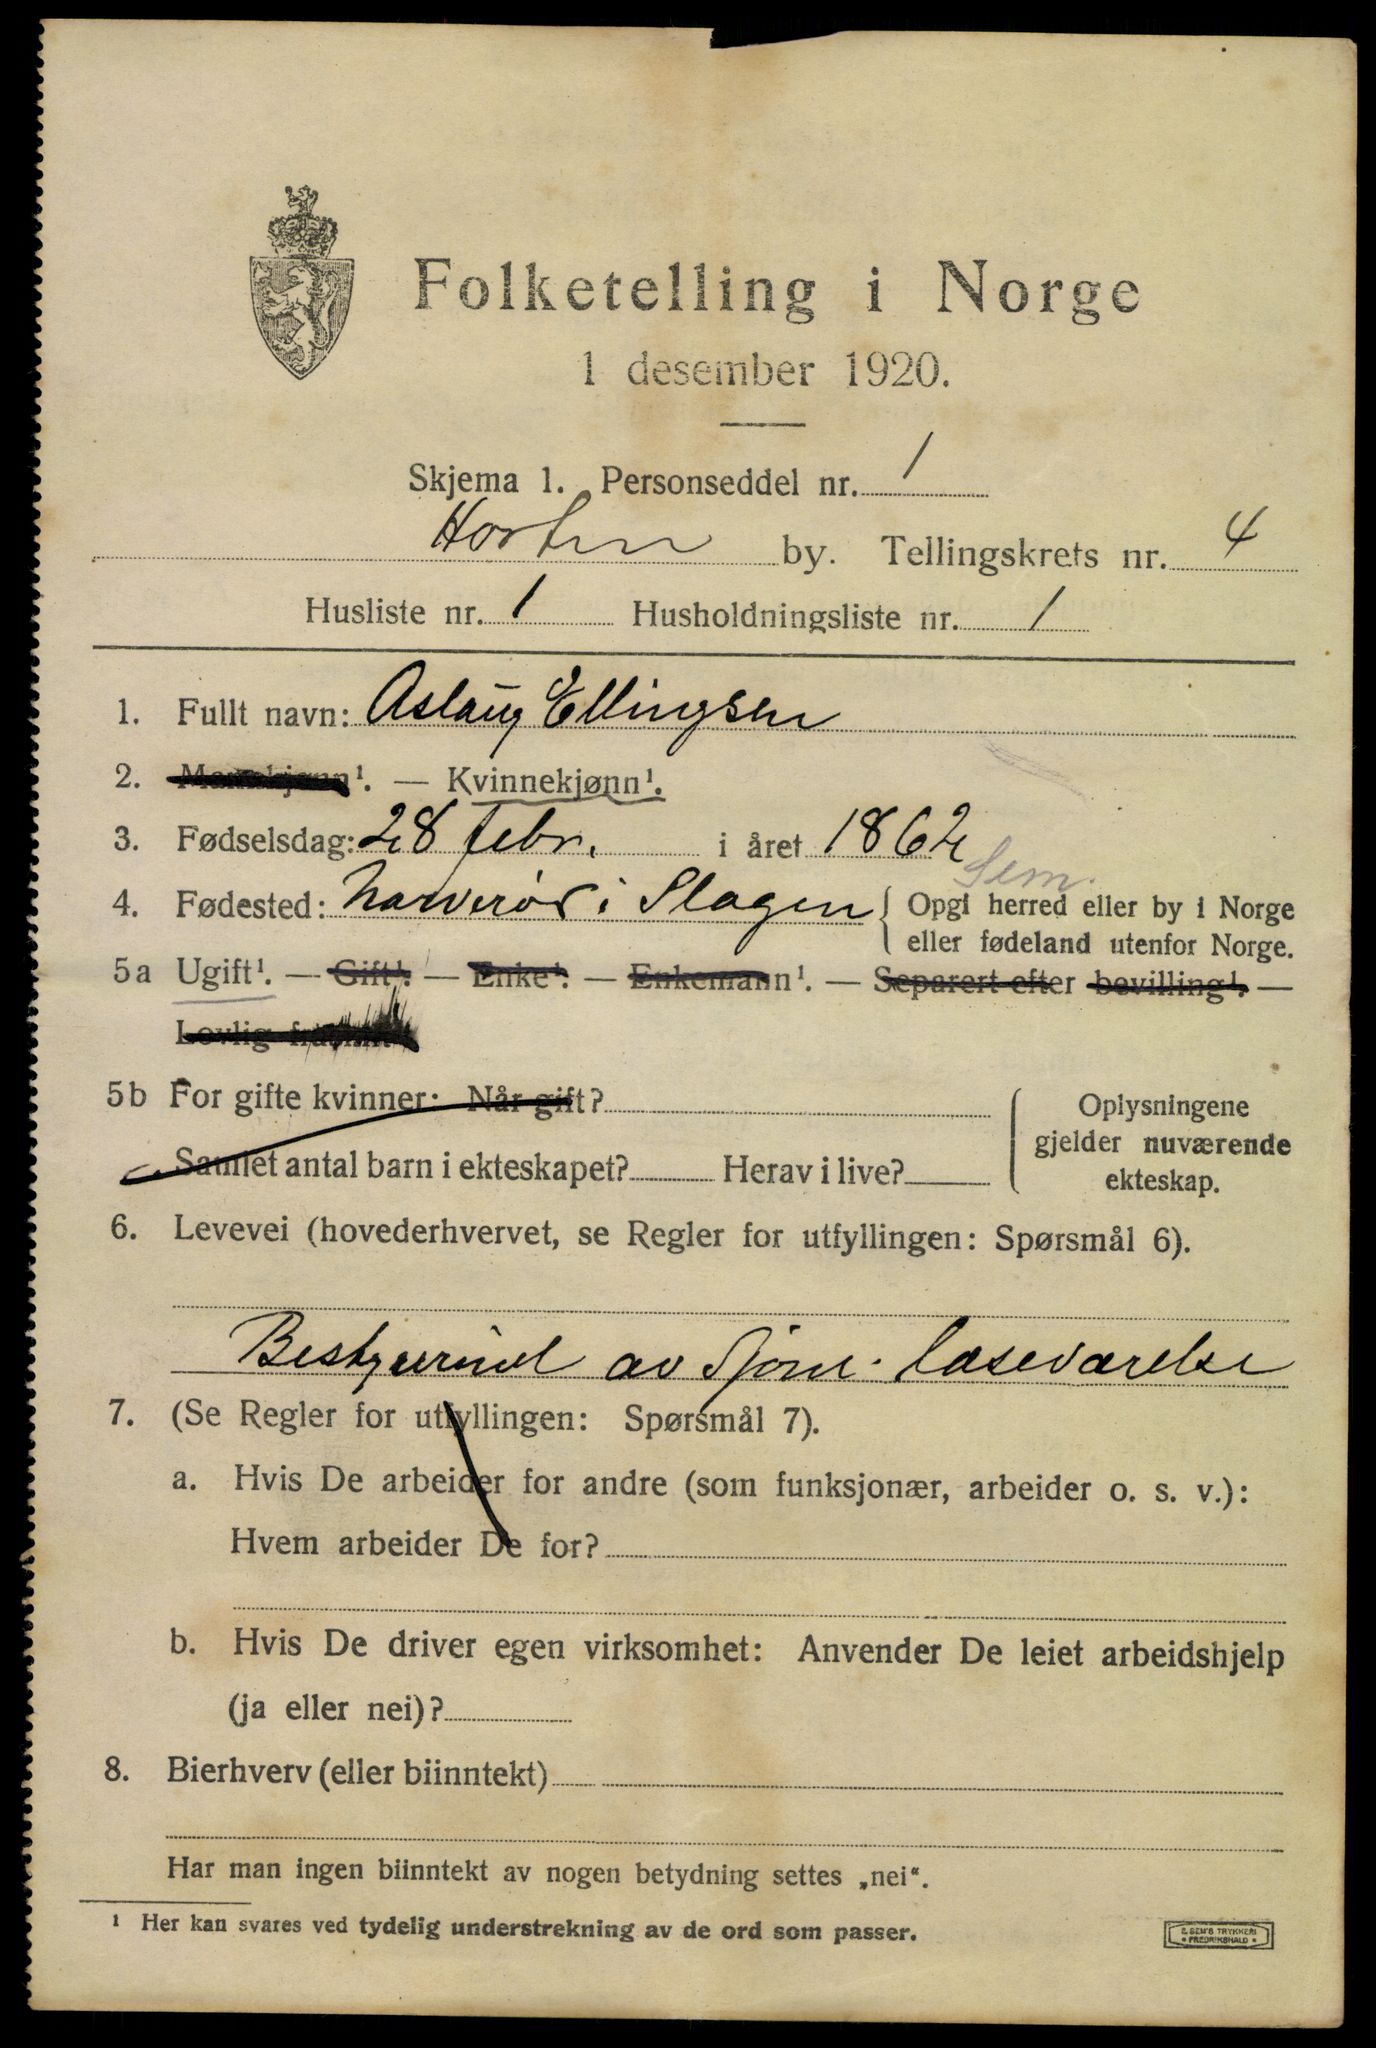 Folketelling i Norge
1 desember 1920.
Skjema 1. Personseddel nr. 1
Horten by. Tellingskrets nr. 4
Husliste nr. 1 Husholdningsliste nr. 1
1. Fullt navn: Aslaug Ellingsen
2. Mannkjønn¹. — Kvinnekjønn¹.
3. Fødselsdag: 28 febr. i året 1862
Sem.
4. Fødested: Narverød i Slagen { Opgi herred eller by i Norge
eller fødeland utenfor Norge.
5a Ugift¹. — Gift¹. — Enke¹. — Enkemann¹. — Separert efter bevilling¹. —
Lovlig fraskilt
5b For gifte kvinner: Når gift?
Samlet antal barn i ekteskapet? Herav i live?
Oplysningene
gjelder nuværende
ekteskap.
6. Levevei (hovederhvervet, se Regler for utfyllingen: Spørsmål 6).
Bestyrerinde av Sjöm. læseværelse
7. (Se Regler for utfyllingen: Spørsmål 7).
a. Hvis De arbeider for andre (som funksjonær, arbeider o. s. v.):
Hvem arbeider De for?
b. Hvis De driver egen virksomhet: Anvender De leiet arbeidshjelp
(ja eller nei)?
8. Bierhverv (eller biinntekt)
Har man ingen biinntekt av nogen betydning settes „nei“.
¹ Her kan svares ved tydelig understrekning av de ord som passer.
E. SEM'S TRYKKERI
• FREDRIKSHALD •